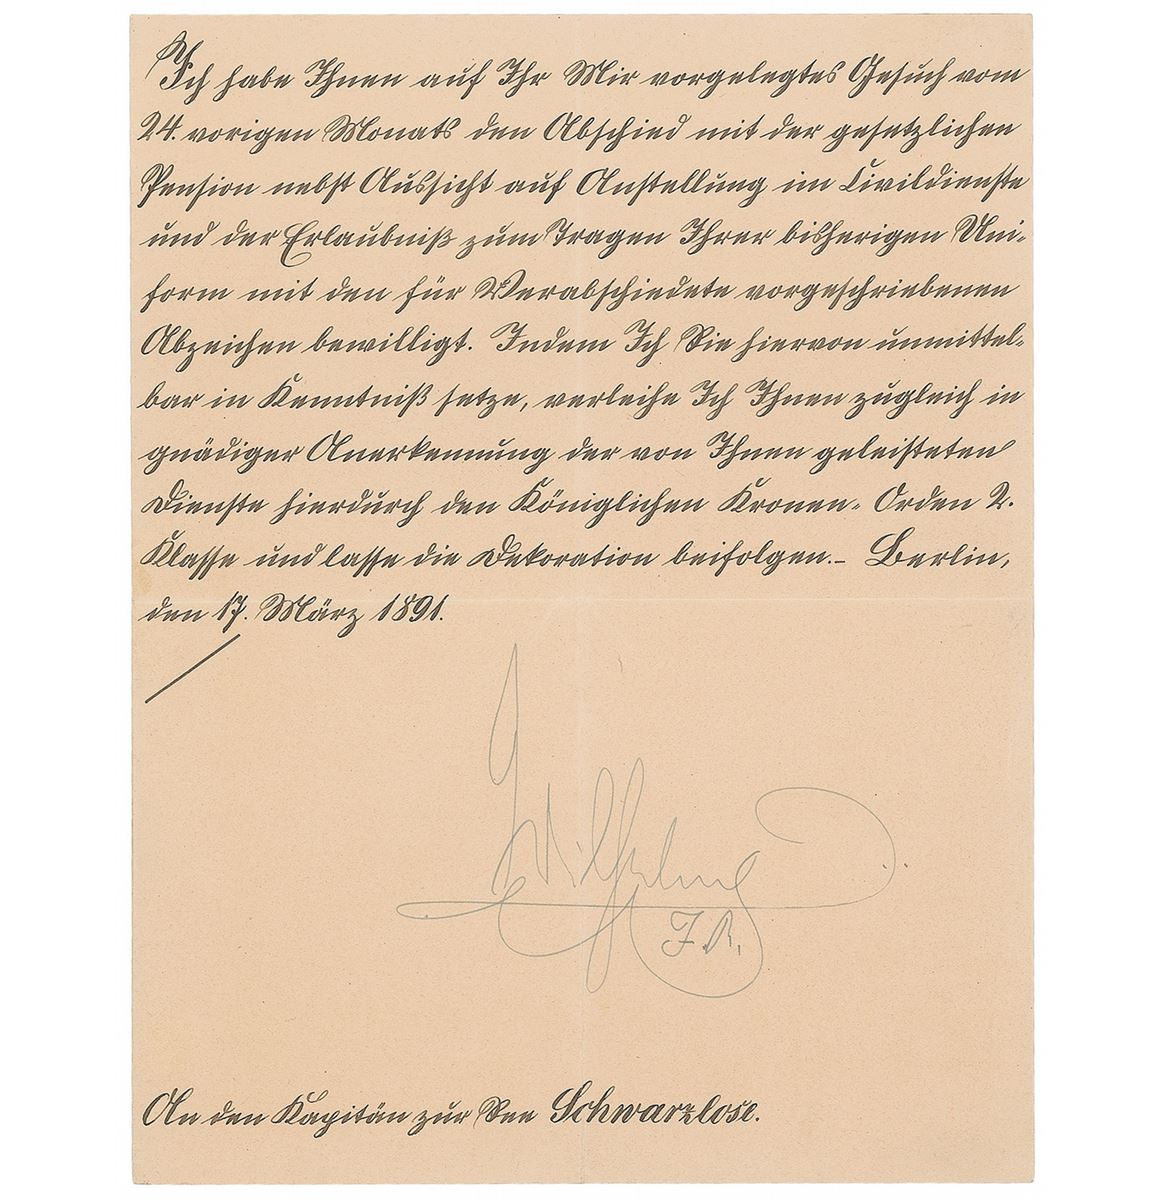 Ich habe Ihnen auf Ihr Mir vorgelegtes Gesuch vom
24. vorigen Monats den Abschied mit der gesetzlichen
Pension nebst Aussicht auf Anstellung im Civildienste
und der Erlaubniß zum Tragen Ihrer bisherigen Uni-
form mit den für Verabschiedete vorgeschriebenen
Abzeichen bewilligt. Indem Ich Sie hiervon unmittel-
bar in Kenntniß setze, verleihe Ich Ihnen zugleich in
gnädiger Anerkennung der von Ihnen geleisteten
Dienste hierdurch den Königlichen Kronen-Orden 2.
Klasse und lasse die Dekoration beifolgen.- Berlin,
den 17. März 1891.
Wilhelm
I.R.
An den Kapitän zur See Schwarzlose.